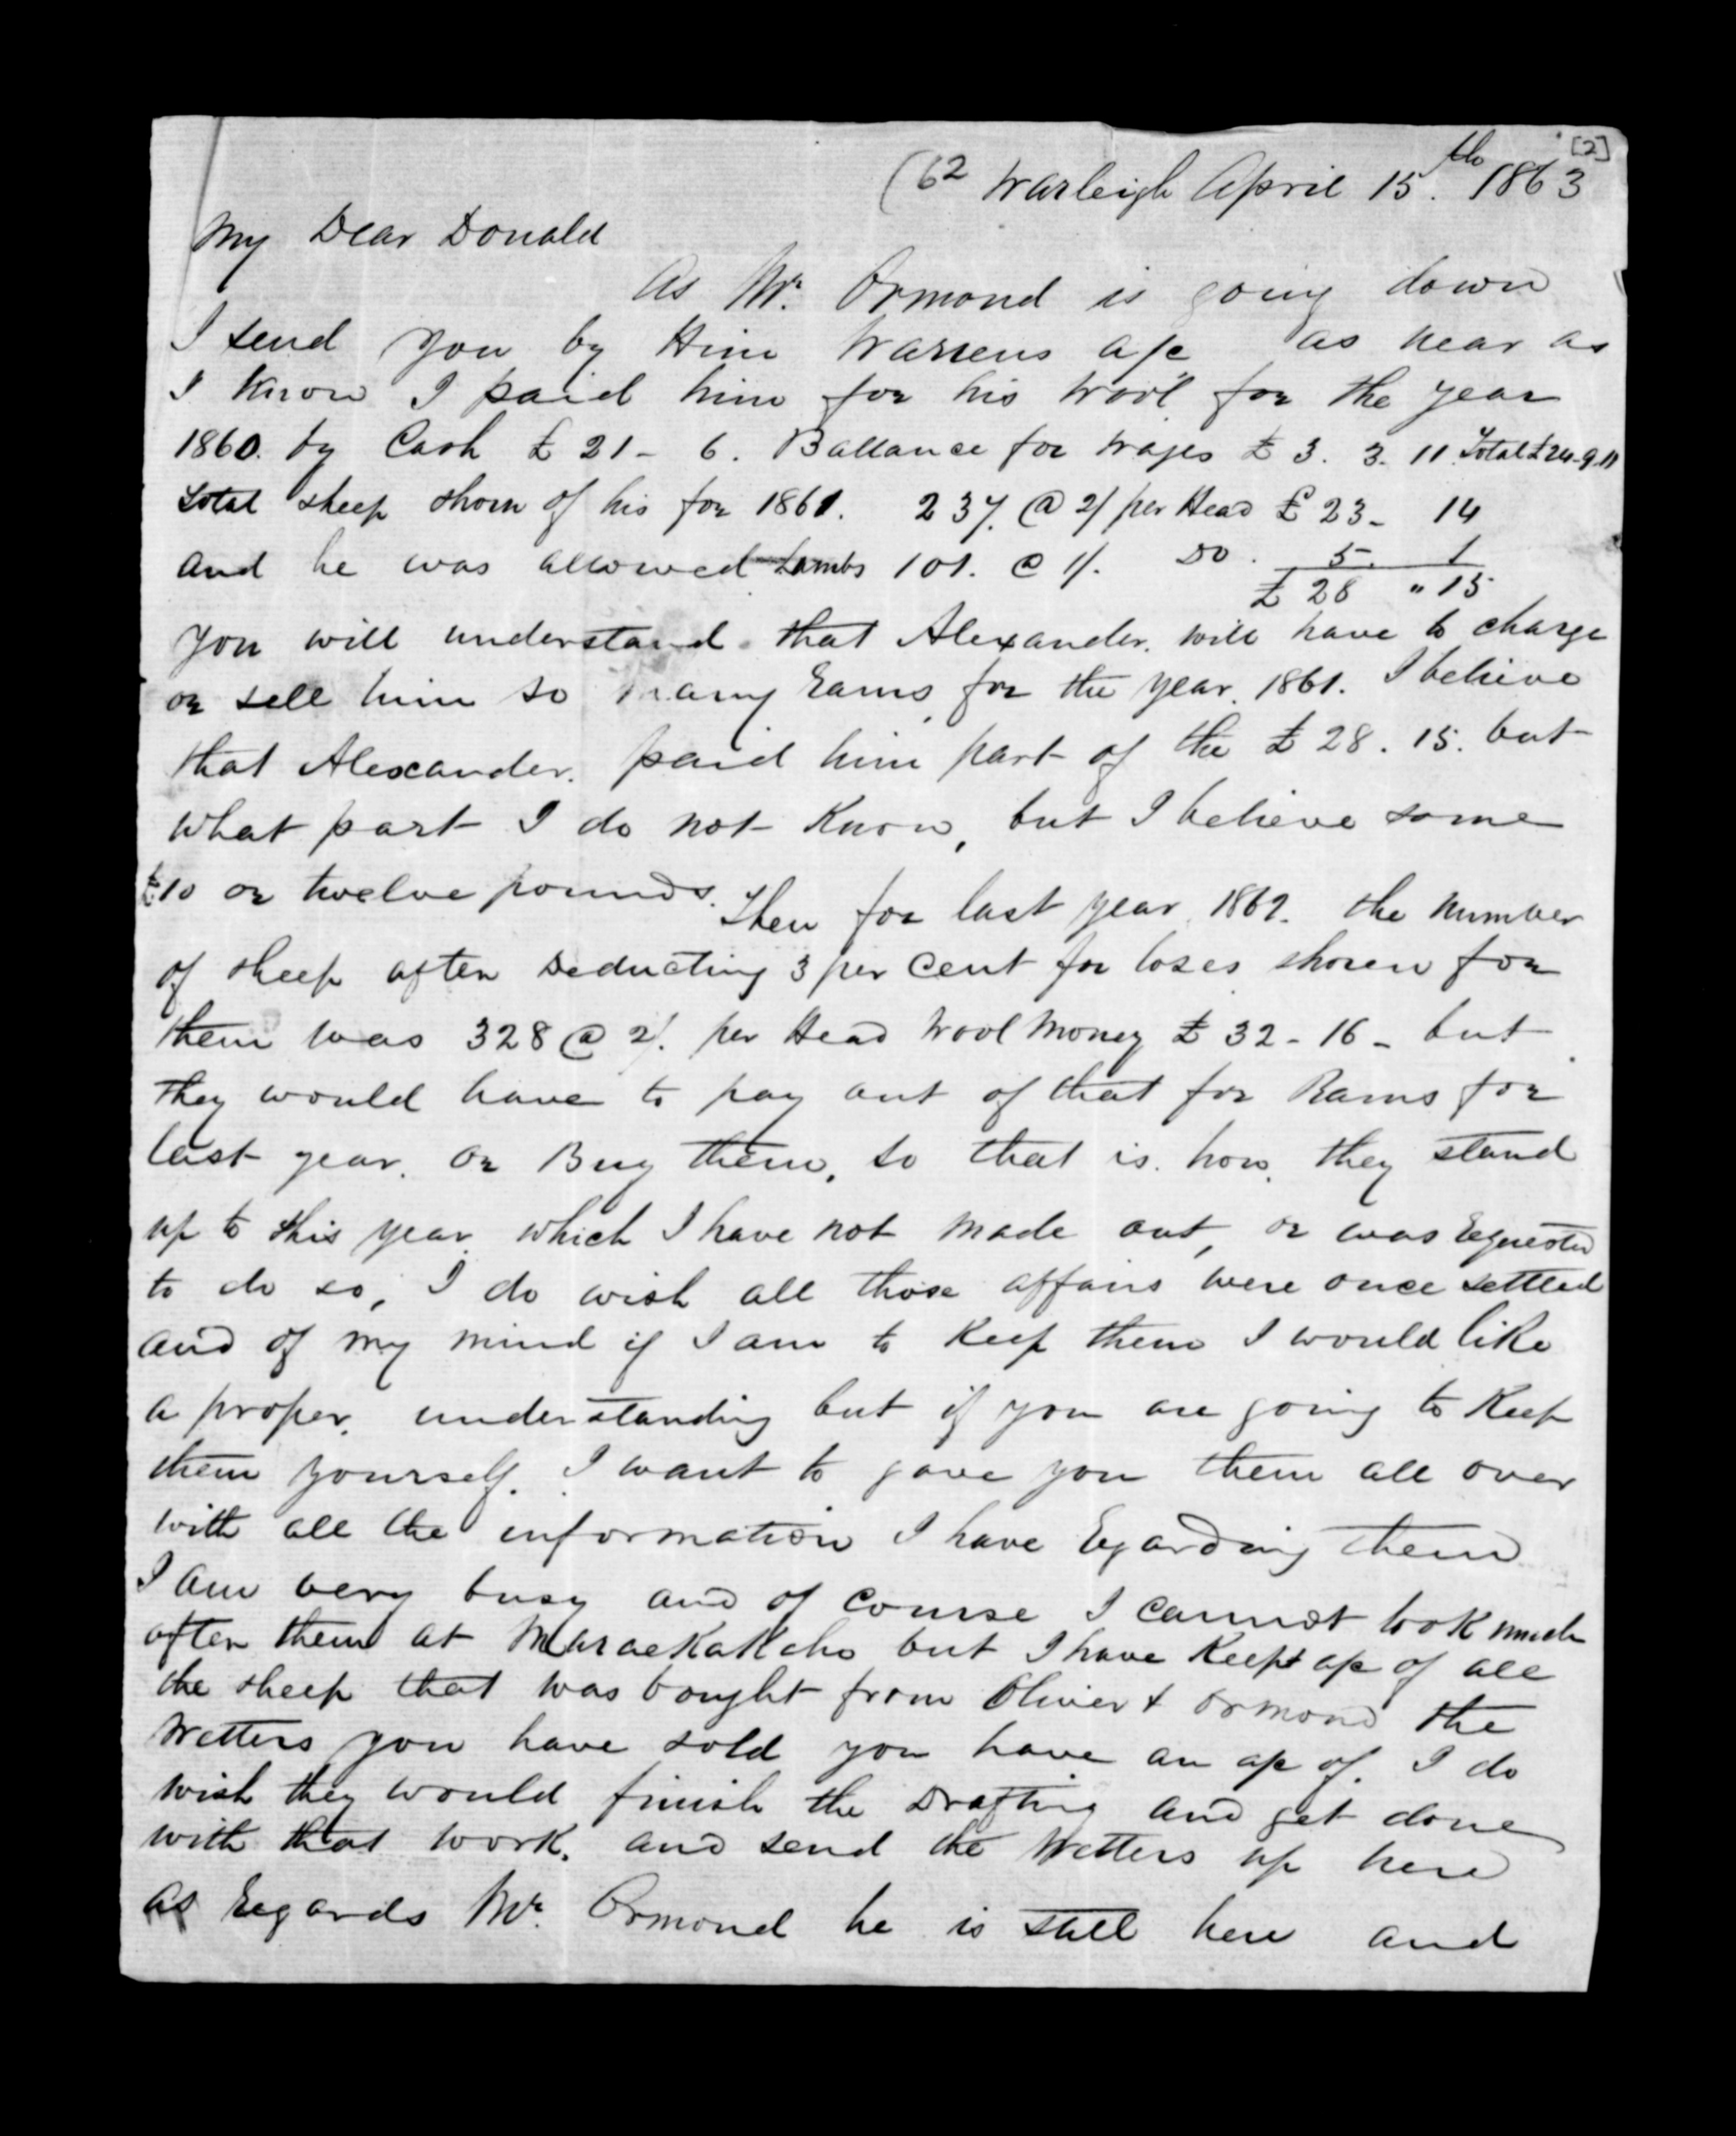 [2]
(62 Warleigh April 15th. 1863
My Dear Donald
As Mr. Ormond is going down
I send you by Him Warrens a/c as near as
I Know I paid him for his Wool for the year
1860. by Cash £ 21 - 6. Ballance for wages £ 3. 3. 11. Total £24.9.11
Total sheep shorn of his for 1861. 237. @ 2/ per Head £ 23 - 14
and he was allowed Lambs 101. @ 1/. Do. 5. 1
£ 28 " 15
you will understand that Alexander. will have to charge
or sell him so many Rams for the year. 1861. I believe
that Alexander. paid him part of the £ 28. 15. but
what part I do not Know, but I believe some
£10 or twelve pounds. Then for last year 1862. the number
of sheep after Deducting 3 per Cent for loses shoren for
them was 328 @ 2/. per Head Wool Money £ 32 - 16 - but
they would have to pay out of that for Rams for
last year. or Buy them, so that is. how. they stand
up to this year which I have not made out, or was Requested
to do so, I do wish all those affairs were once settled
and of my mind if I am to Keep them I would like
a proper. understanding but if you are going to Keep
them yourself. I want to gave you them all over
with all the information I have Regarding them
I am very busy and of course I cannot look much
after them at Maraekakaho but I have Keept a/c of all
the sheep that was bought from Oliver & Ormond the
Wetters you have sold you have an a/c of. I do
wish they would finish the Drafting and get done
with that work. and send the Wetters up here
as Regards Mr. Ormond he is still here and